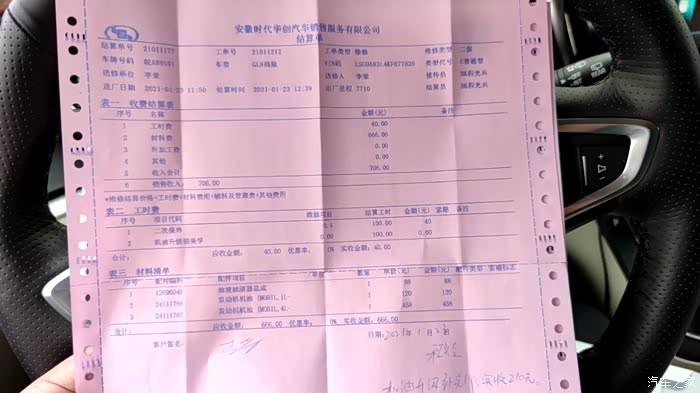 安徽时代华创汽车销售服务有限公司
结算单
结算单号 21011177 工单号 21011212 工单类型 维修 维修类型 二保
车牌号码 车型 GL8商旅 VIN码 类型代号 C普通型
送修单位 李荣 送修人 李荣 接待员
进厂日期 2021-01-23 11:50 结算时间 2021-01-23 12:39 出厂总程 7710 结算员
表一 收费结算表
序号 名称 金额(元) 备注
1 工时费 40.00
2 材料费 666.00
3 外加工费 0.00
4 其他 0.00
5 收入合计 706.00
6 销售收入: 706.00
*维修结算价格=工时费+材料费用+辅料及管理费+其他费用
表二 工时费
序号 项目代码 维修项目 结算工时 金额(元) 索赔 备注
1 二次保养 0.4 100.00 40
2 机油升级甜美孚 0.00 100.00 0.00
合计: 应收金额: 40.00 优惠率: 0% 实收金额: 40.00
表三 材料清单
序号 配件编码 配件项目 /单位 数量 单价(元) 金额(元) 配件类型 索赔标志
1 12696048 油液滤清器总成 1 88 88
2 24111766 发动机机油 (MOBIL,1L- 1 120 120
3 24111767 发动机机油 (MOBIL,4L- 1 458 458
合计: 应收金额: 666.00 优惠率: 0% 实收金额: 666.00
客户签名: 日期: 2021年1月23日
实收210元。
汽车之家